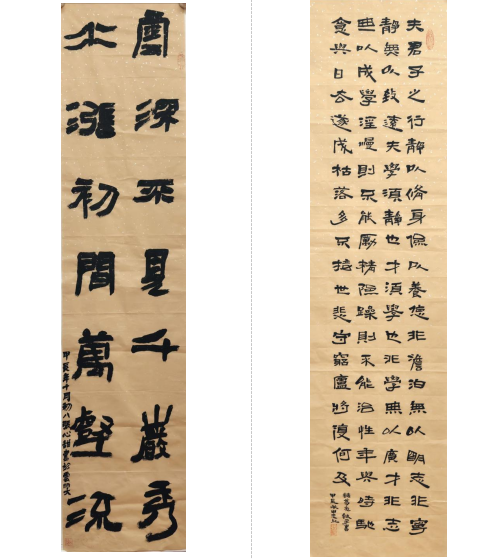 雲深不見千巖秀
水漲初聞萬壑流
甲辰年十月初八張心甜書於雲師大
夫君子之行靜以脩身儉以養德非澹泊無以明志非寧
靜無以致遠夫學須靜也才須學也非學無以廣才非志
無以成學淫慢則不能勵精險躁則不能治性年與時馳
意與日去遂成枯落多不接世悲守窮廬將復何及
諸葛亮誡子書
甲辰秋田